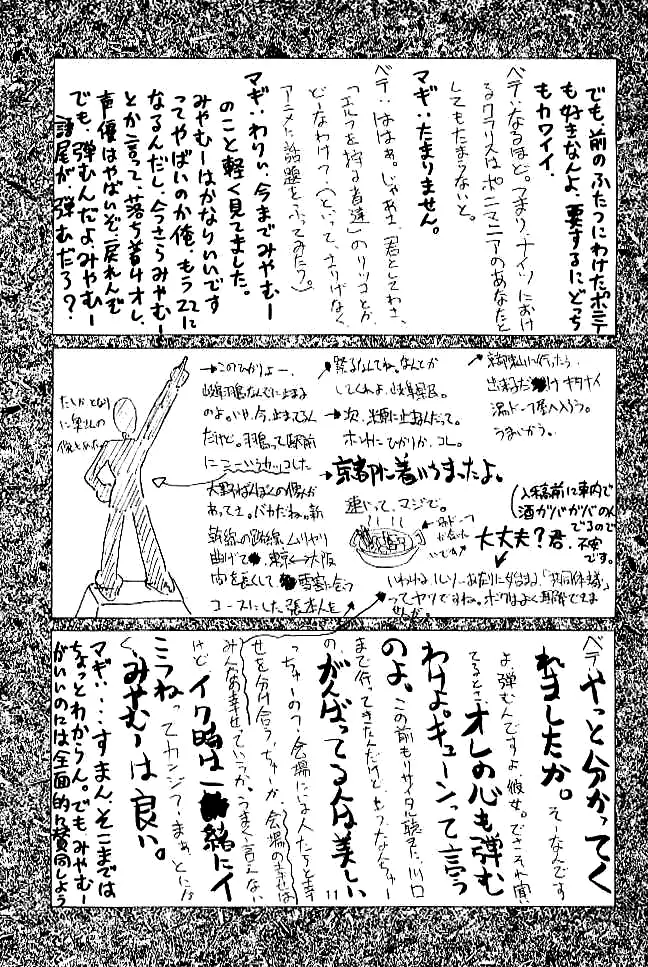 でも、前のふたつにわけたポニテ
も好きなんよ、要するにどっち
もカワイイ.
ベテ:なるほど。つまり、ナイツにおけ
るクラリスはポニマニアのあなたと
してもたまらないと。
マギ:たまりません。
ベテ:ははあ。じゃあさ、君としてわさ、
「エルフを狩る者達」のリツコとか、
どーなわけ?(といって、さりげなく
アニメに話題をふってみたり。)
マギ:わりい、今までみやむー
のこと軽く見てました。
みやむーはかなりいいです
ってやばいのか俺、もう22に
なるんだし、今さらみやむー
とか言って、落ち着けオレ、
声優はやばいぞ、戻れんぞ
でも、弾むんだよみやむー
語尾が弾むだろ?
京都駅に行ったら、
出来るだけキタナイ
湯ドーフ屋へ入ろう。
うまいかう。
(入稿前に車内で
酒ガバガバのん
でるので
不安
です。
→
してくれよ、岐阜県民。
→次、米原に止まるんだって。
ホントにひかりか、コレ。
→京都に着いちまったよ。
速いって、マジで。
大丈夫?君、
いわゆる、ルソーあたりに始まる、「共同体験」
ってヤツですね。ボクはよく理解できま
せんが。
→このひかりよー、
岐阜羽島なんぞに止まる
のよ。いや、今、止まってるん
だけど。羽島って駅前
に
大野ばんぼくの像が
あってさ。バカだね。新
幹線の路線、ムリヤリ
曲げて東京↔大阪
間を長くして、雪害に会う
コースにした張本人を
たしかとなり
に奥さんの
像とかが
ベテ:やっと分かってく
れましたか。そーなんです
よ、弾むんですよ、彼女。でさ、それ聞い
てるとさ、オレの心も弾む
わけよ。キューンって言う
のよ、この前もリサイタル聴きに、川口
まで行ってきたんだけど、もうなんちゅー
の、がんばってる人は美しい
っちゅーの?会場にいる人たちと幸
せを分け合う、ちゅーか、会場の幸せは
みんなの幸せっていうか、うまく言えない
けど、イク時は一緒にイ
こうねってカンジ?まぁ、とにか
く、みやむーは良い。
マギ:・・・すまん、そこまでは
ちょっとわからん。でも、みやむー
がいいのには全面的に賛同しよう